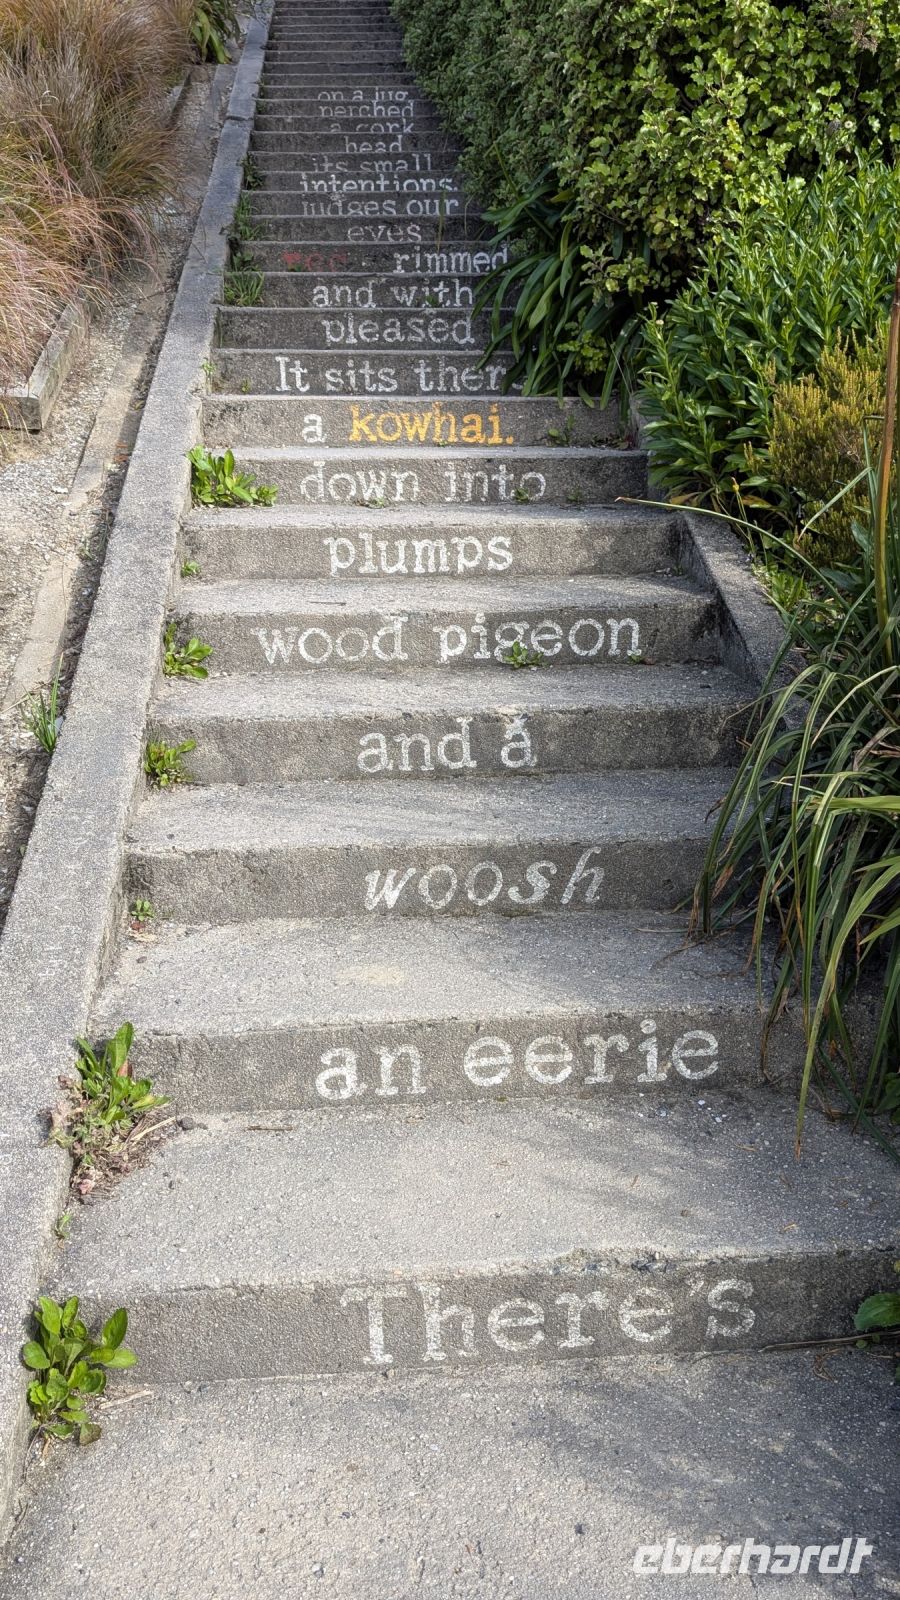 There's
an eerie
woosh
and a
wood pigeon
plumps
down into
a kowhai.
It sits there
pleased
and with
red - rimmed
eyes
judges our
intentions,
its small
head
a cork
perched
on a jug
eberhardt